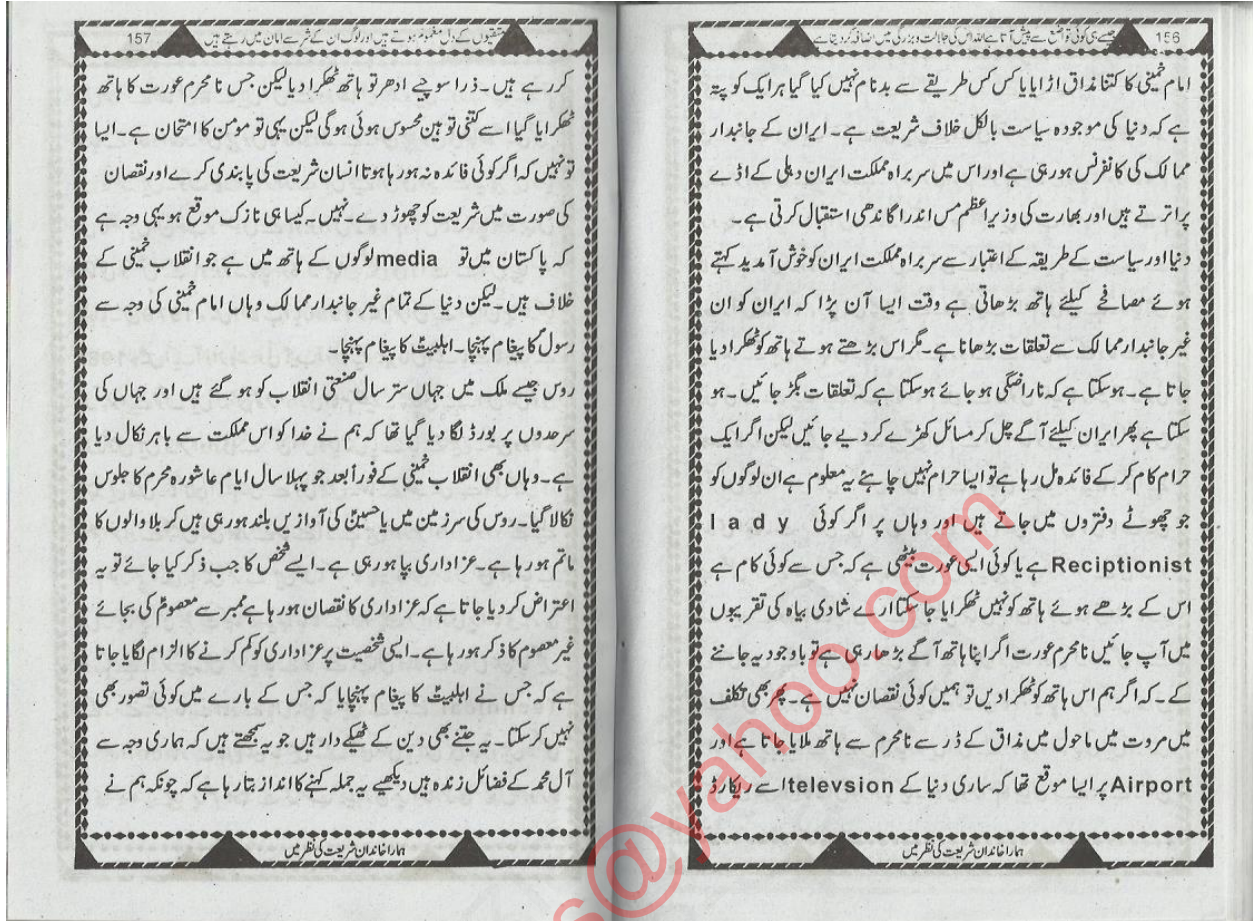 156 جیسے ہی کوئی تواضع سے پیش آتا ہے اللہ اس کی جلالت و بزرگی میں اضافہ کر دیتا ہے
امام خمینیؒ کا کتنا مذاق اڑایا یا کس کس طریقے سے بدنام نہیں کیا گیا ہر ایک کو پتہ
ہے کہ دنیا کی موجودہ سیاست بالکل خلاف شریعت ہے۔ ایران کے جانبدار
ممالک کی کانفرنس ہو رہی ہے اور اس میں سربراہ مملکت ایران دہلی کے اڈے
پر اترتے ہیں اور بھارت کی وزیراعظم مس اندرا گاندھی استقبال کرتی ہے۔
دنیا اور سیاست کے طریقہ کے اعتبار سے سربراہ مملکت ایران کو خوش آمدید کہتے
ہوئے مصافحے کیلئے ہاتھ بڑھاتی ہے وقت ایسا آن پڑا کہ ایران کو ان
غیر جانبدار ممالک سے تعلقات بڑھانا ہے۔ مگر اس بڑھتے ہوتے ہاتھ کو ٹھکرا دیا
جاتا ہے۔ ہو سکتا ہے کہ ناراضگی ہو جائے ہو سکتا ہے کہ تعلقات بگڑ جائیں۔ ہو
سکتا ہے پھر ایران کیلئے آگے چل کر مسائل کھڑے کر دیے جائیں لیکن اگر ایک
حرام کام کر کے فائدہ مل رہا ہے تو ایسا حرام نہیں چاہئے یہ معلوم ہے ان لوگوں کو
جو چھوٹے دفتروں میں جاتے ہیں اور وہاں پر اگر کوئی lady
Reciptionist ہے یا کوئی ایسی عورت بیٹھی ہے کہ جس سے کوئی کام ہے
اس کے بڑھے ہوئے ہاتھ کو نہیں ٹھکرایا جا سکتا ارے شادی بیاہ کی تقریبوں
میں آپ جائیں نامحرم عورت اگر اپنا ہاتھ آگے بڑھا رہی ہے تو باوجود یہ جاننے
کے۔ کہ اگر ہم اس ہاتھ کو ٹھکرا دیں تو ہمیں کوئی نقصان نہیں ہے۔ پھر بھی تکلف
میں مروت میں ماحول میں مذاق کے ڈر سے نامحرم سے ہاتھ ملایا جاتا ہے اور
Airport پر ایسا موقع تھا کہ ساری دنیا کے televsion اسے ریکارڈ
ہمارا خاندان شریعت کی نظر میں
متقیوں کے دل مغموم ہوتے ہیں اور لوگ ان کے شر سے امان میں رہتے ہیں 157
کر رہے ہیں۔ ذرا سوچیے ادھر تو ہاتھ ٹھکرا دیا لیکن جس نامحرم عورت کا ہاتھ
ٹھکرایا گیا اسے کتنی توہین محسوس ہوئی ہوگی لیکن یہی تو مومن کا امتحان ہے۔ ایسا
تو نہیں کہ اگر کوئی فائدہ نہ ہو رہا ہو تا انسان شریعت کی پابندی کرے اور نقصان
کی صورت میں شریعت کو چھوڑ دے۔ نہیں۔ کیسا ہی نازک موقع ہو یہی وجہ ہے
کہ پاکستان میں تو media لوگوں کے ہاتھ میں ہے جو انقلاب خمینیؒ کے
خلاف ہیں۔ لیکن دنیا کے تمام غیر جانبدار ممالک وہاں امام خمینیؒ کی وجہ سے
رسولؐ کا پیغام پہنچا۔ اہلبیتؑ کا پیغام پہنچا۔
روس جیسے ملک میں جہاں ستر سال صنعتی انقلاب کو ہو گئے ہیں اور جہاں کی
سرحدوں پر بورڈ لگا دیا گیا تھا کہ ہم نے خدا کو اس مملکت سے باہر نکال دیا
ہے۔ وہاں بھی انقلاب خمینیؒ کے فوراً بعد جو پہلا سال ایام عاشورہ محرم کا جلوس
نکالا گیا۔ روس کی سرزمین میں یاحسینؑ کی آوازیں بلند ہو رہی ہیں کربلا والوں کا
ماتم ہو رہا ہے۔ عزاداری بپا ہو رہی ہے۔ ایسے شخص کا جب ذکر کیا جائے تو یہ
اعتراض کر دیا جاتا ہے کہ عزاداری کا نقصان ہو رہا ہے ممبر سے معصومؑ کی بجائے
غیر معصوم کا ذکر ہو رہا ہے۔ ایسی شخصیت پر عزاداری کو کم کرنے کا الزام لگایا جاتا
ہے کہ جس نے اہلبیتؑ کا پیغام پہنچایا کہ جس کے بارے میں کوئی تصور بھی
نہیں کر سکتا۔ یہ جتنے بھی دین کے ٹھیکے دار ہیں جو یہ سمجھتے ہیں کہ ہماری وجہ سے
آل محمدؐ کے فضائل زندہ ہیں دیکھیے یہ جملہ کہنے کا انداز بتا رہا ہے کہ چونکہ ہم نے
ہمارا خاندان شریعت کی نظر میں
s@yahoo.com